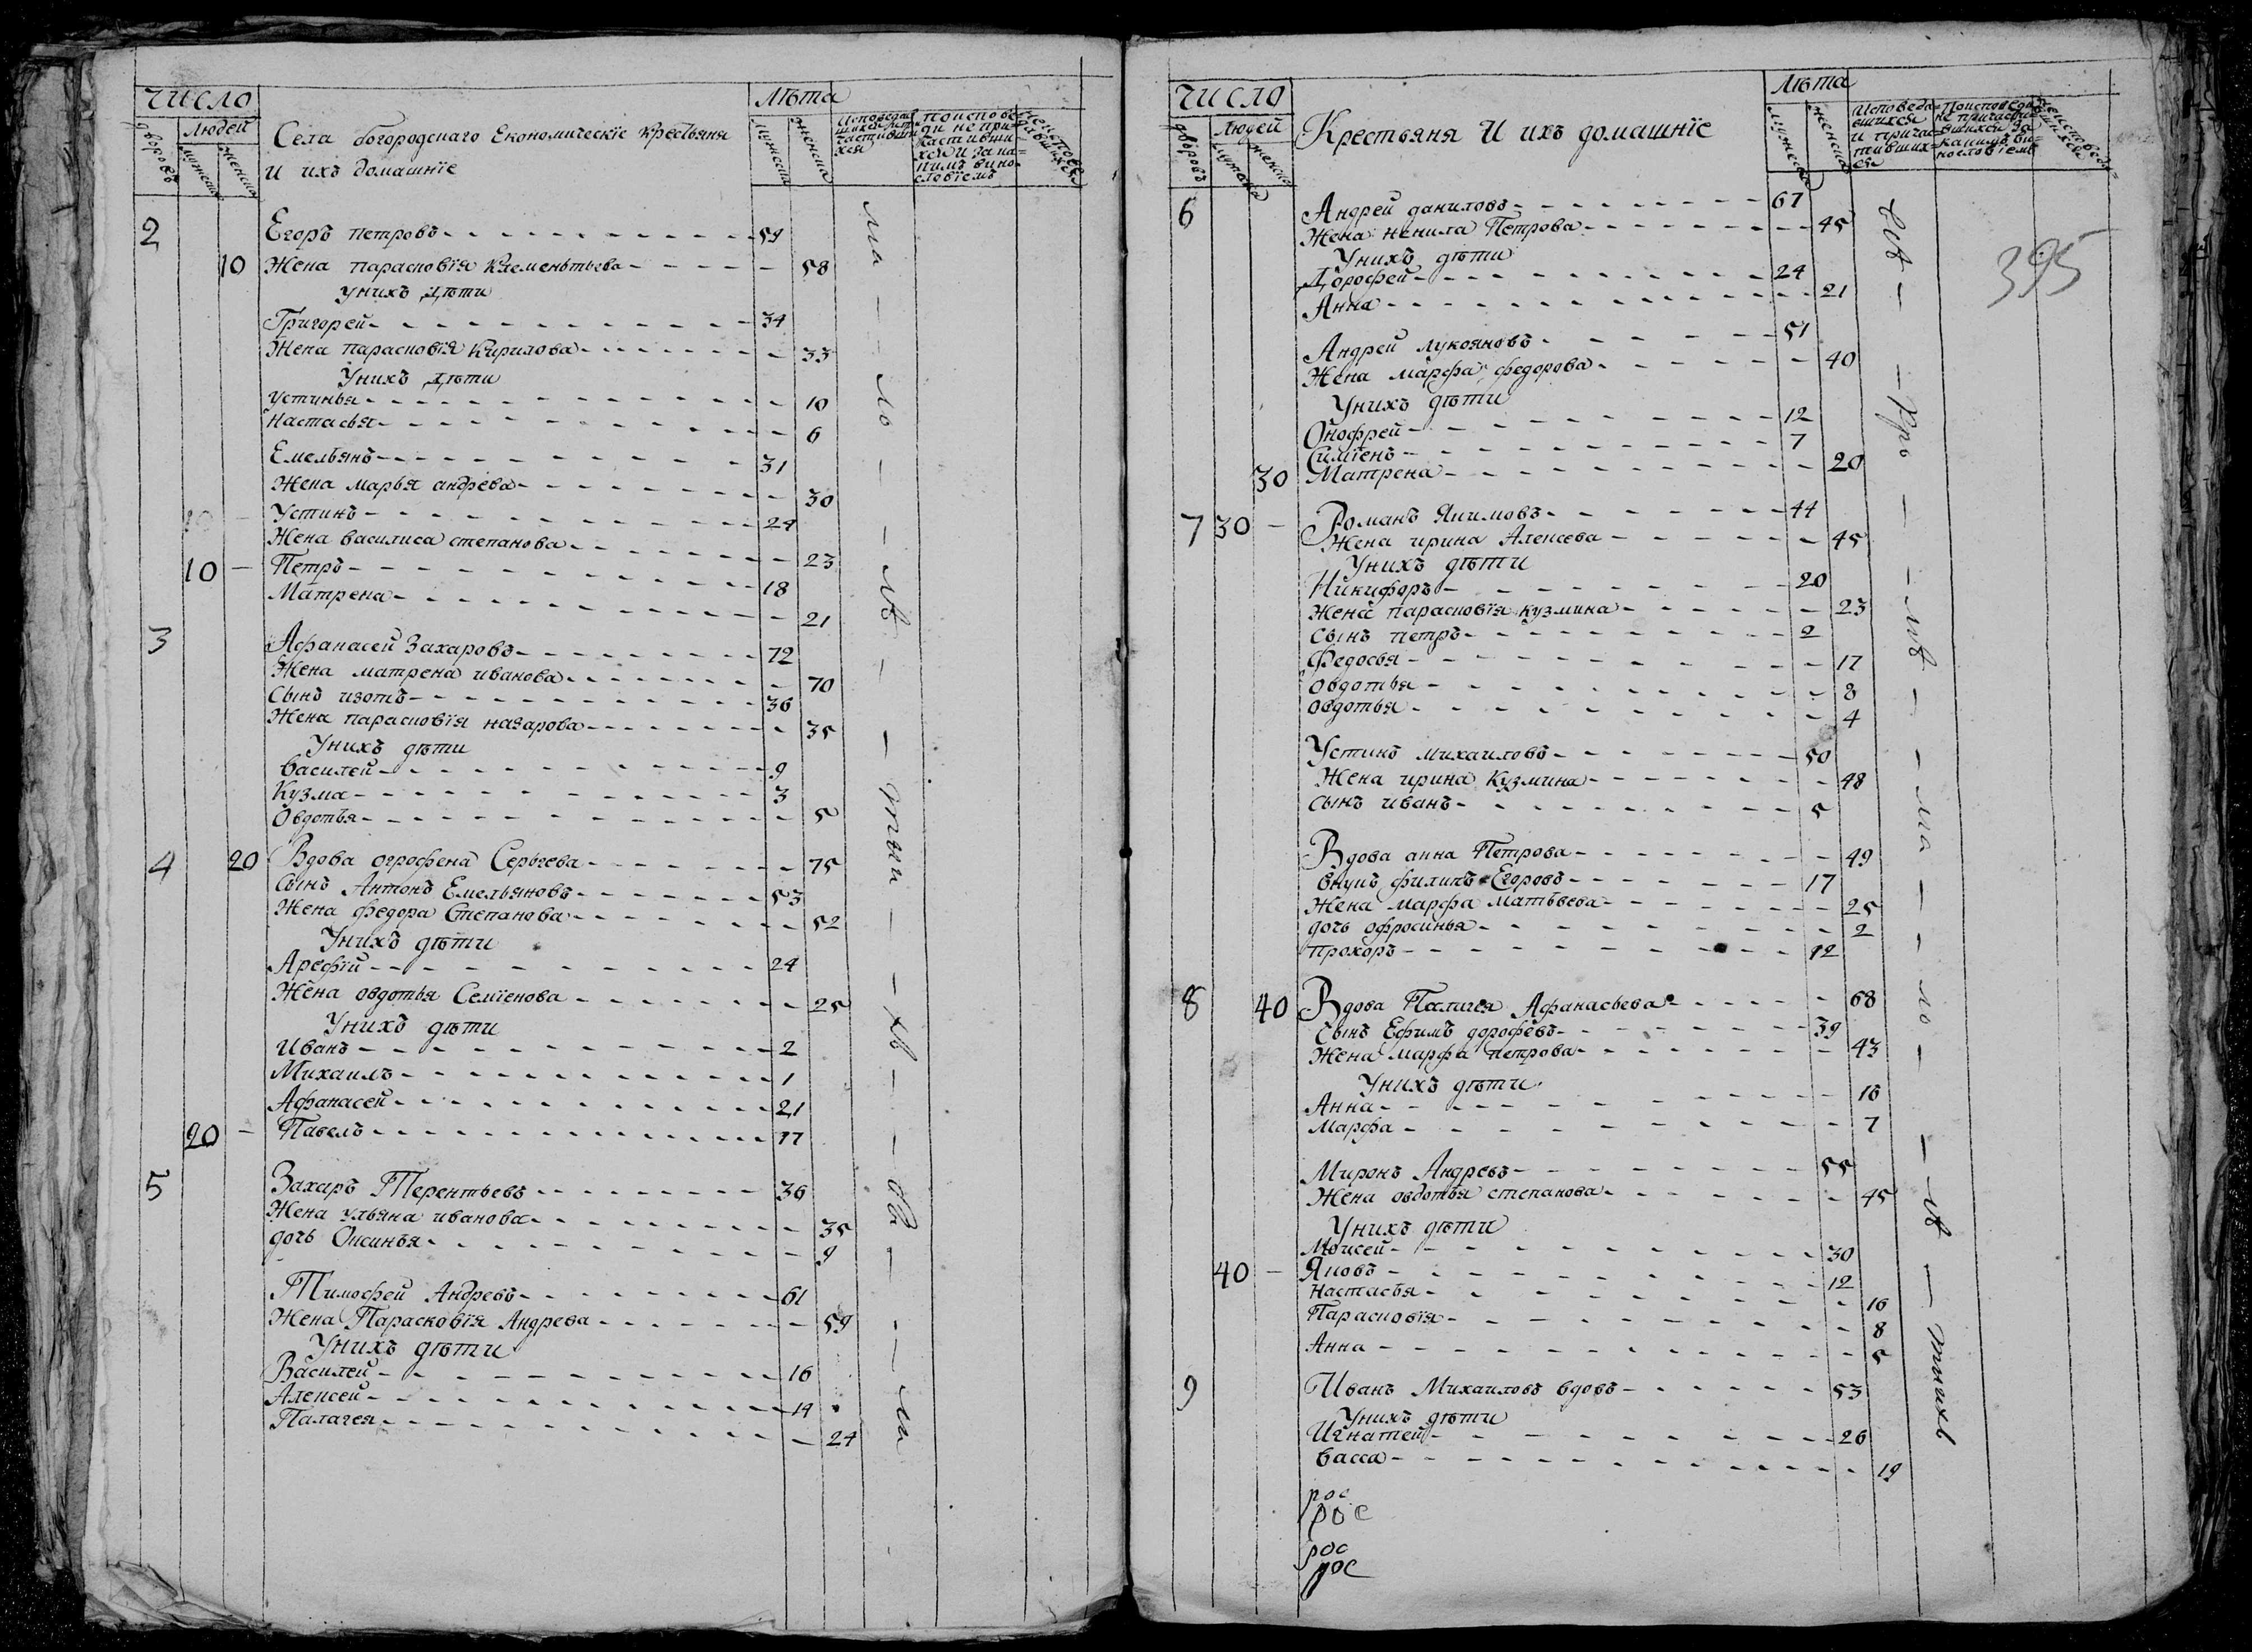 число
Лѣта
дворовъ
Людей
мужеска
женска
Села богородскаго Економическїе крестьяня
и ихъ домашнїе
мужеска
женска
2 Егоръ петровъ 59
10 Жена парасковїя клементьева 58
унихъ дѣти
Григорей 34
Жена парасковїя кирилова 33
Унихъ дѣти
устинья 10
настасья 6
Емельянъ 31
Жена марья андрева 30
10 Устинъ 24
Жена василиса степанова 23
10 Петръ 18
Матрена 21
3 Афанасей Захаровъ 72
Жена матрена иванова 70
Сынъ изотъ 36
Жена парасковїя назарова 35
Унихъ дѣти
василей 9
Кузма 3
Овдотья 5
4 20 Вдова огрофена Сергеева 75
Сынъ Антонъ Емельяновъ 53
Жена федора Степанова 52
Унихъ дѣти
Арефїй 24
Жена овдотья Семїенова 25
Унихъ дѣти
Иванъ 2
Михаилъ 1
Афанасей 21
20 Павелъ 17
5 Захаръ Терентьевъ 36
Жена ульяна иванова 35
дочь Оксинья 9
Тимофей Андревъ 61
Жена Парасковїя Андрева 59
Унихъ дѣти
Василей 16
Алексей 14
Палагея 24
число
Лѣта
дворовъ
Людей
мужеска
женска
Крестьяня И ихъ домашнїе
мужеска
женска
Исповеда
вшихся
и причас
тивших
ся
395
6 Андрей даниловъ 67
Жена ненила Петрова 45
Унихъ дѣти
Дорофей 24
Анна 21
Андрей лукояновъ 51
Жена марфа федорова 40
Унихъ дѣти
Онофрей 12
Симїенъ 7
30 Матрена 20
7 30 Романъ Якимовъ 44
Жена ирина Алексева 45
Унихъ дѣти
Никифоръ 20
Жена парасковїя кузмина 23
сынъ петръ 2
Федосья 17
овдотья 8
овдотья 4
Устинъ михаиловъ 50
Жена ирина Кузмина 48
сынъ иванъ 5
Вдова анна Петрова 49
внукъ филипъ Егоровъ 17
Жена марфа матвѣева 25
дочь офросинья 2
прохоръ 12
8 40 Вдова Палагея Афанасьева 68
сынъ Ефимъ дорофѣвъ 39
Жена марфа петрова 43
Унихъ дѣти
Анна 16
Марфа 7
Миронъ Андревъ 55
Жена овдотья степанова 45
Унихъ дѣти
Моисей 30
40 Яковъ 12
настасья 16
Парасковїя 8
Анна 5
9 Иванъ Михаиловъ вдовъ 53
Унихъ дѣти
Игнатей 26
васса 19
рос
рос
рос
рос